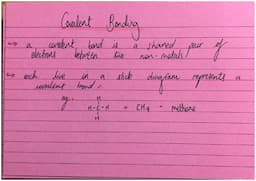 Covalent Bonding
⇒ a covalent bond is a shared pair of
electrons between two non-metals
⇒ each line in a stick diagram represents a
covalent bond.
eg.
H
H-C-H = CH4 - methane
H